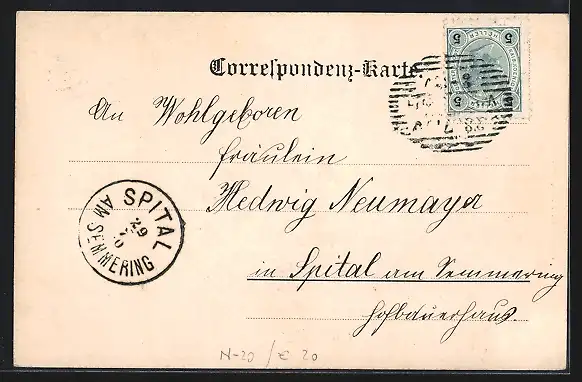 Correspondenz-Karte
5 5
HELLER
5 5
An Wohlgeboren
Fräulein
Hedwig Neumayer
in Spital am Semmering
Hofbauerhaus.
SPITAL
AM SEMMERING
29
N-20/€ 20